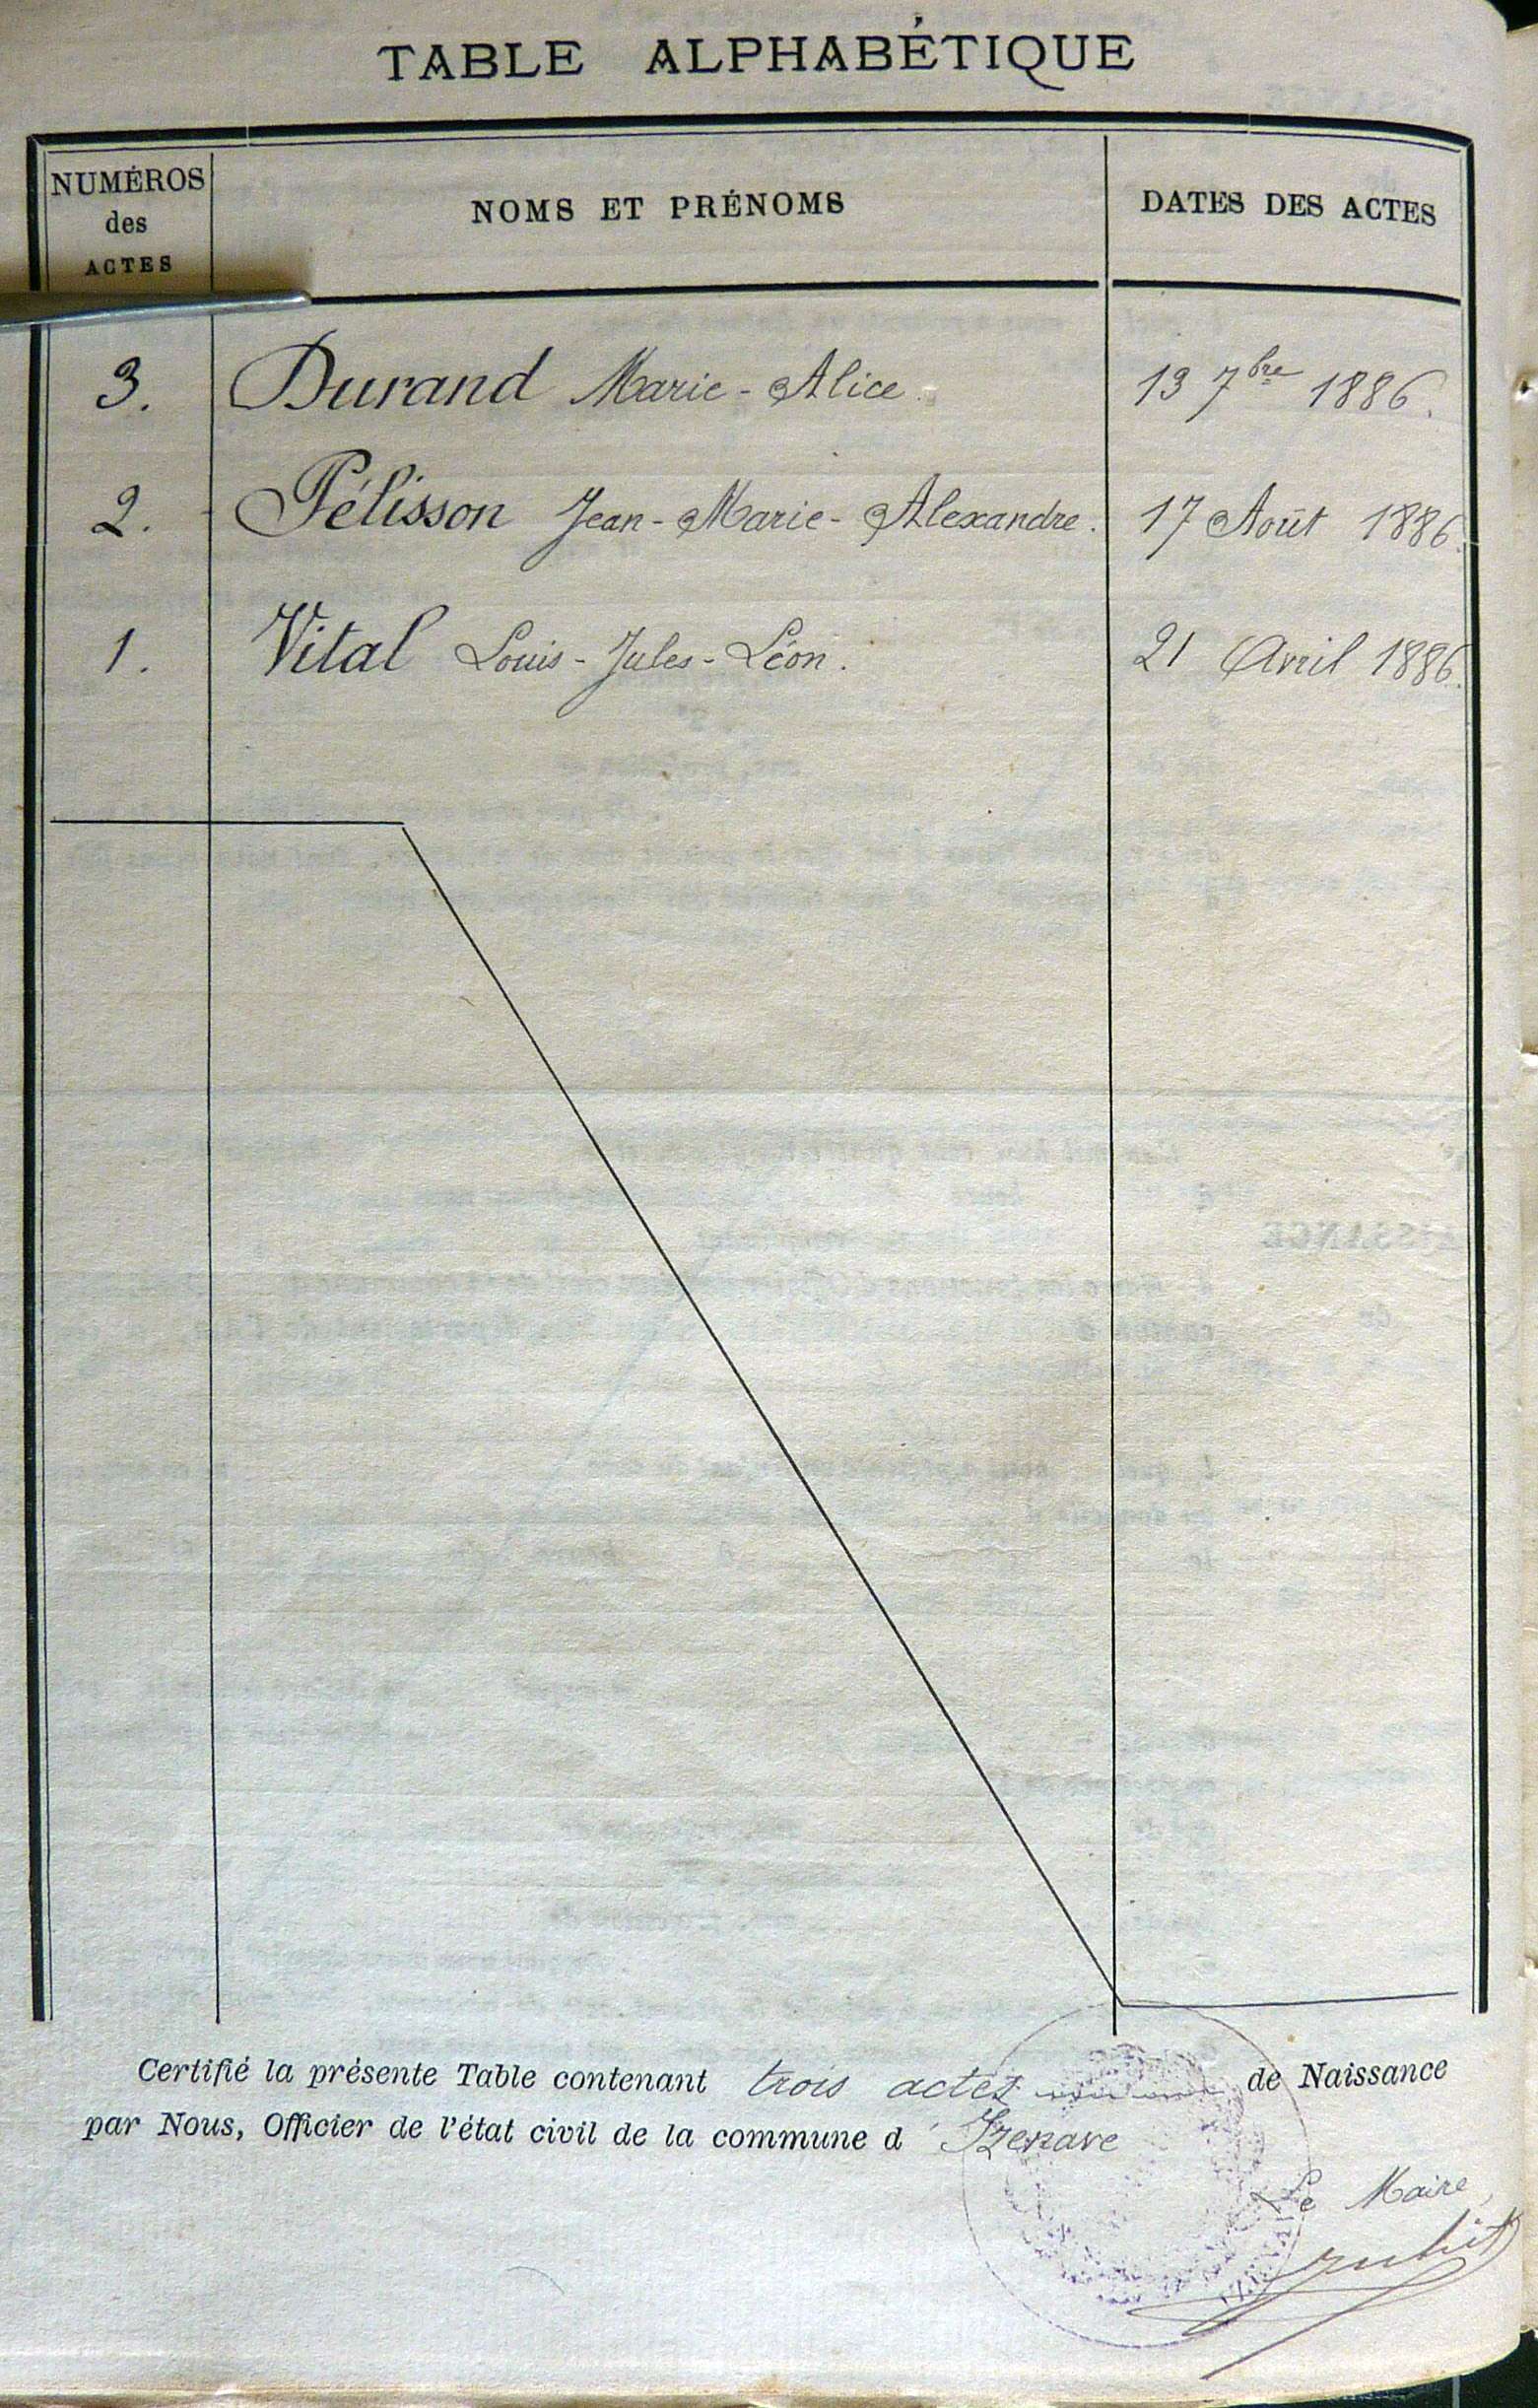 TABLE ALPHABÉTIQUE
NUMÉROS
des
ACTES
NOMS ET PRÉNOMS
DATES DES ACTES
3. Durand Marie-Alice. 13 7bre 1886.
2. Pélisson Jean-Marie-Alexandre. 17 Août 1886.
1. Vital Louis-Jules-Léon. 21 Avril 1886.
Certifié la présente Table contenant trois actes de Naissance
par Nous, Officier de l'état civil de la commune d'Izenave
Le Maire,